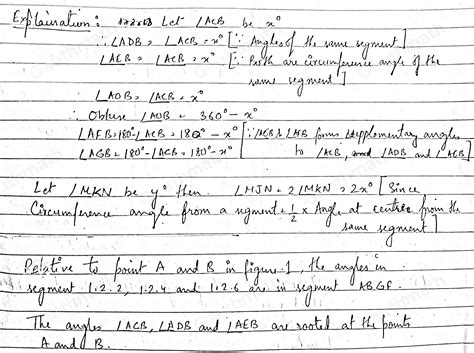 Explaination: Let ∠ACB be x°
∴ ∠ADB = ∠ACB = x° [∵ Angles of the same segment]
∠AEB = ∠ACB = x° [∵ Both are circumference angle of the
same segment]
∠AOB = ∠ACB = x°
∴ Obtuse ∠AOB = 360° - x°
∠AFB = 180° - ∠ACB = 180° - x° [∵ ∠AGB & ∠AFB forms supplementary angles
∠AGB = 180° - ∠ACB = 180° - x° to ∠ACB, and ∠ADB and ∠AEB]
Let ∠MKN be y° then ∠MJN = 2∠MKN = 2x° [Since
Circumference angle from a segment = 1/2 x Angle at centre from the
same segment]
Relative to point A and B in figure-1, the angles in
segment 1.2.2, 1.2.4 and 1.2.6 are in segment ABGF.
The angles ∠ACB, ∠ADB and ∠AEB are rooted at the points
A and B.